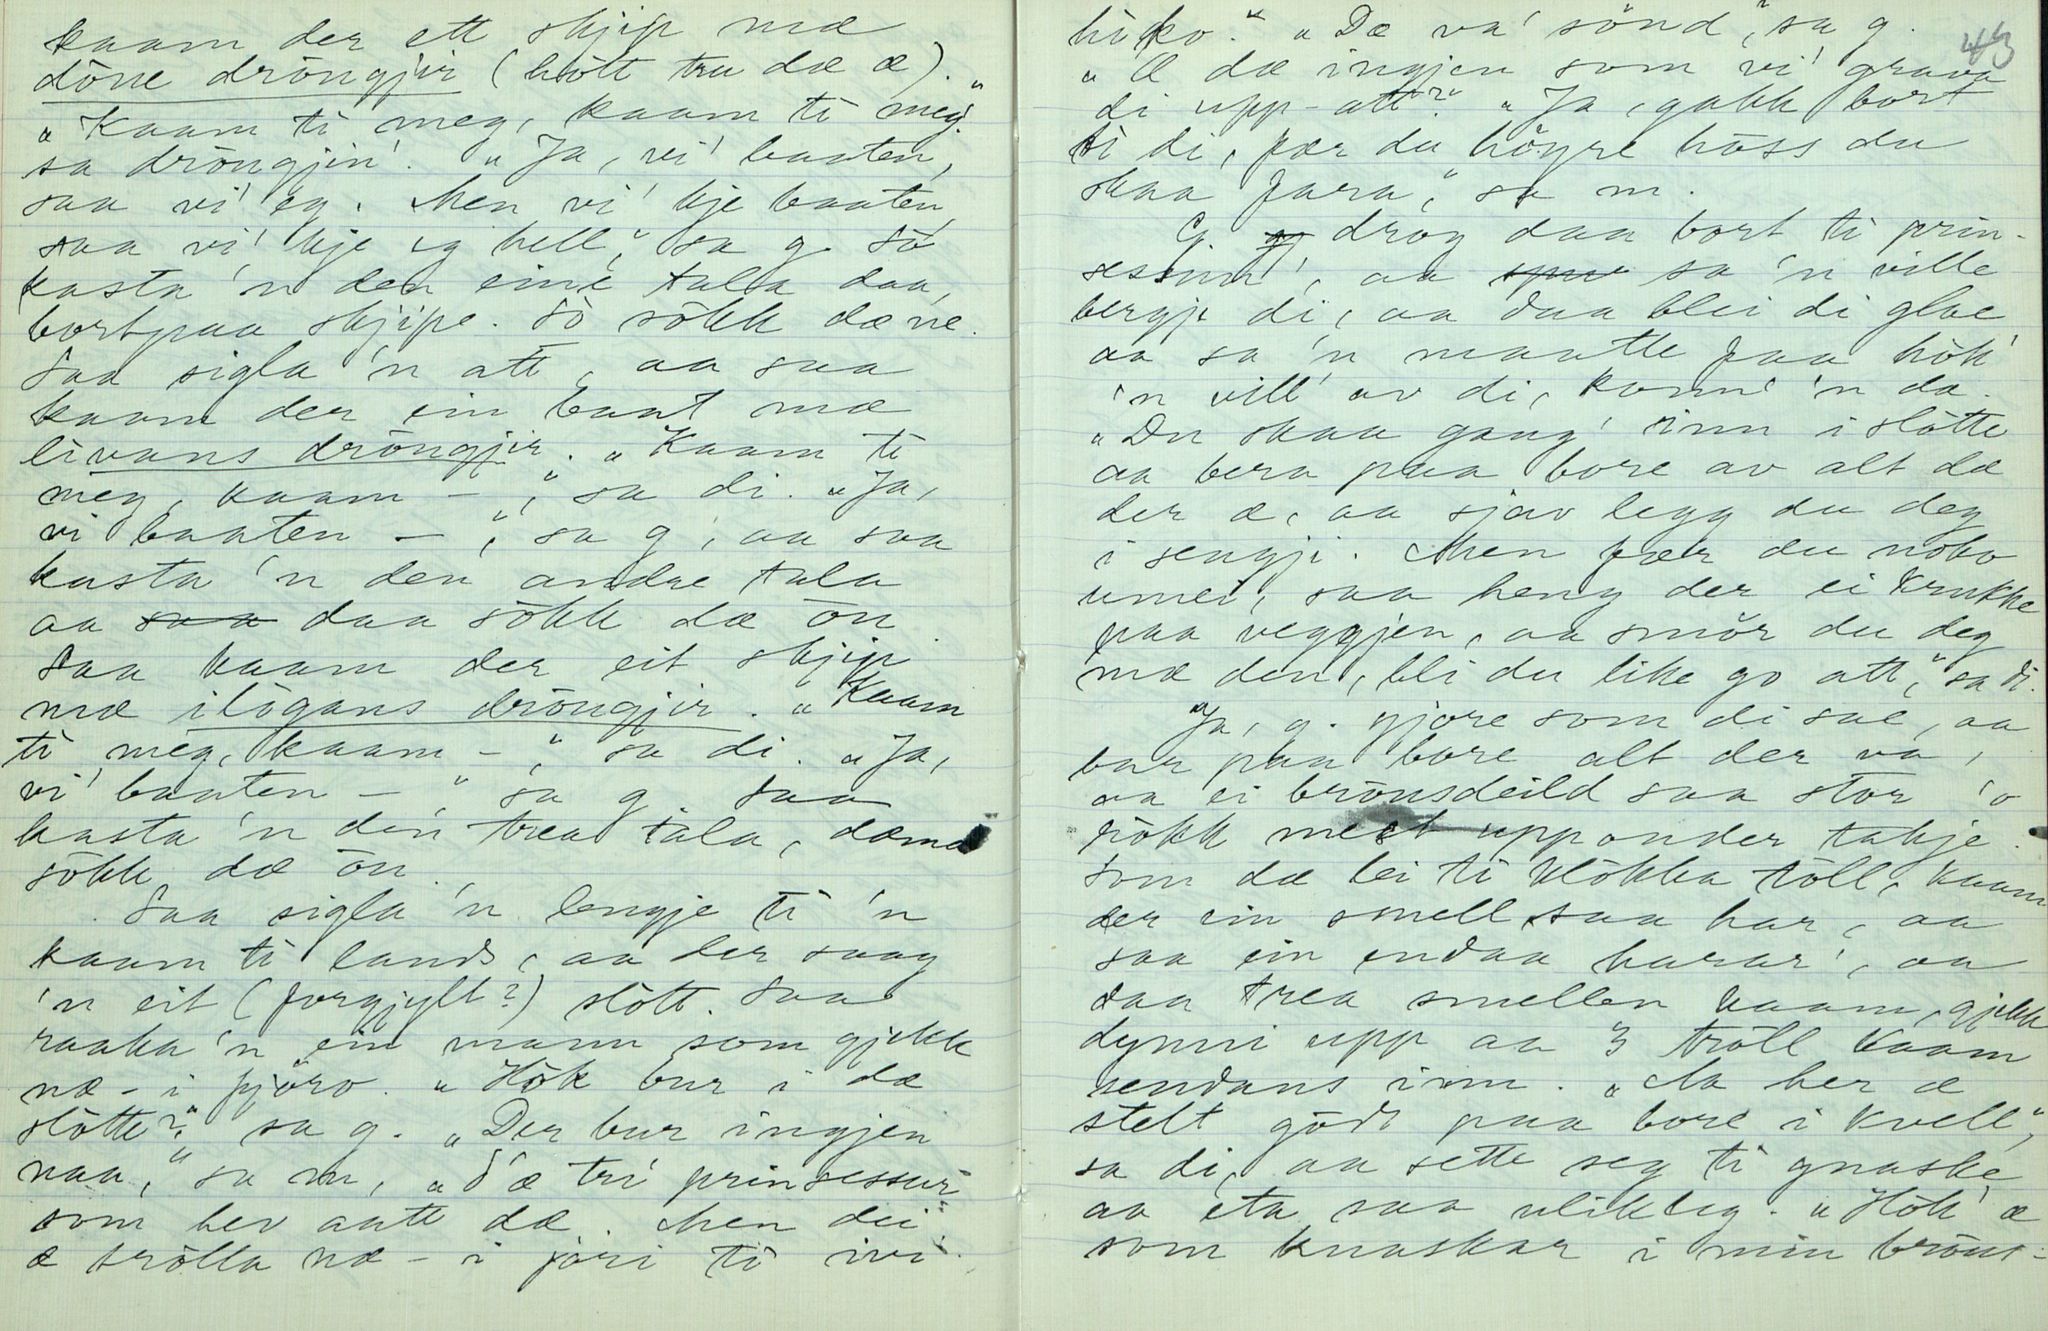 kaam der ett skjip mæ
döne dröngjir (hött tru dæ æ).
„Kaam ti meg, kaam ti meg"
sa dröngjin'. „Ja, vi' baaten,
saa vi' eg. Men vi' kje baaten,
saa vi' kje eg hell," sa g. Sö
kasta 'n den eine tala daa,
bortpaa skjipe. Sö sökk dæ ne.
Saa sigla 'n att, aa saa
kaam der ein baat mæ
livans dröngjir. „Kaam ti
meg, kaam – ," sa di. „Ja,
vi baaten – ," sa g, aa saa
kasta 'n den andre tala
aa daa sökk dæ ön.
Saa kaam der eit skjip
mæ ilögans dröngjir. „Kaam
ti meg, kaam – ," sa di. „Ja,
vi' baaten – " sa g. Saa
kasta 'n den trea tala, dæmæ
sökk dæ ön.
Saa sigla 'n lengje ti 'n
kaam ti lands, aa der saag
'n eit (forgjylt?) slött. Saa
raaka 'n ein mann som gjekk
næ-i fjöro. „Hök bur i dæ
slötte?" sa g. „Der bur ingjen
naa," sa m, „d'æ tri prinsessur
som hev aatt dæ. Men dei
æ trölla næ-i jöri ti ivi
hiko." „Dæ va' sönd," sa g. 43
„Æ dæ ingjen som vi' grava
di upp-att?" „Ja, gakk bort
ti di, fær du höyre höss du
skaa fara," sa m.
G. drog daa bort ti prin-
sessun', aa sa 'n ville
bergje di, aa daa blei di glae
aa sa 'n maatte faa hök'
'n vill' av di, konni 'n da.
„Du skaa gang' inn i slötte
aa bera paa bore av alt dæ
der æ, aa sjøv legg du deg
i sengji. Men fær du noko
umei, saa heng der ei krukke
paa veggjen, aa smör du deg
mæ den, bli du like go att," sa di.
Ja, g. gjore som di sae, aa
bar paa bore alt der va,
aa ei brönsdeild saa stor 'o
rökk mest upp onder takje.
Som dæ lei ti klökka töll, kaam
der ein smell saa har, aa
saa ein endaa harar', aa
daa trea smellen kaam, gjekk
dynni upp aa 3 tröll kaam
rendans inn. „Aa her æ
stelt godt paa bore i kvell,"
sa di, aa sette seg ti gnaske
aa eta saa ulikleg. „Hök' æ
som knaskar i min bröns-